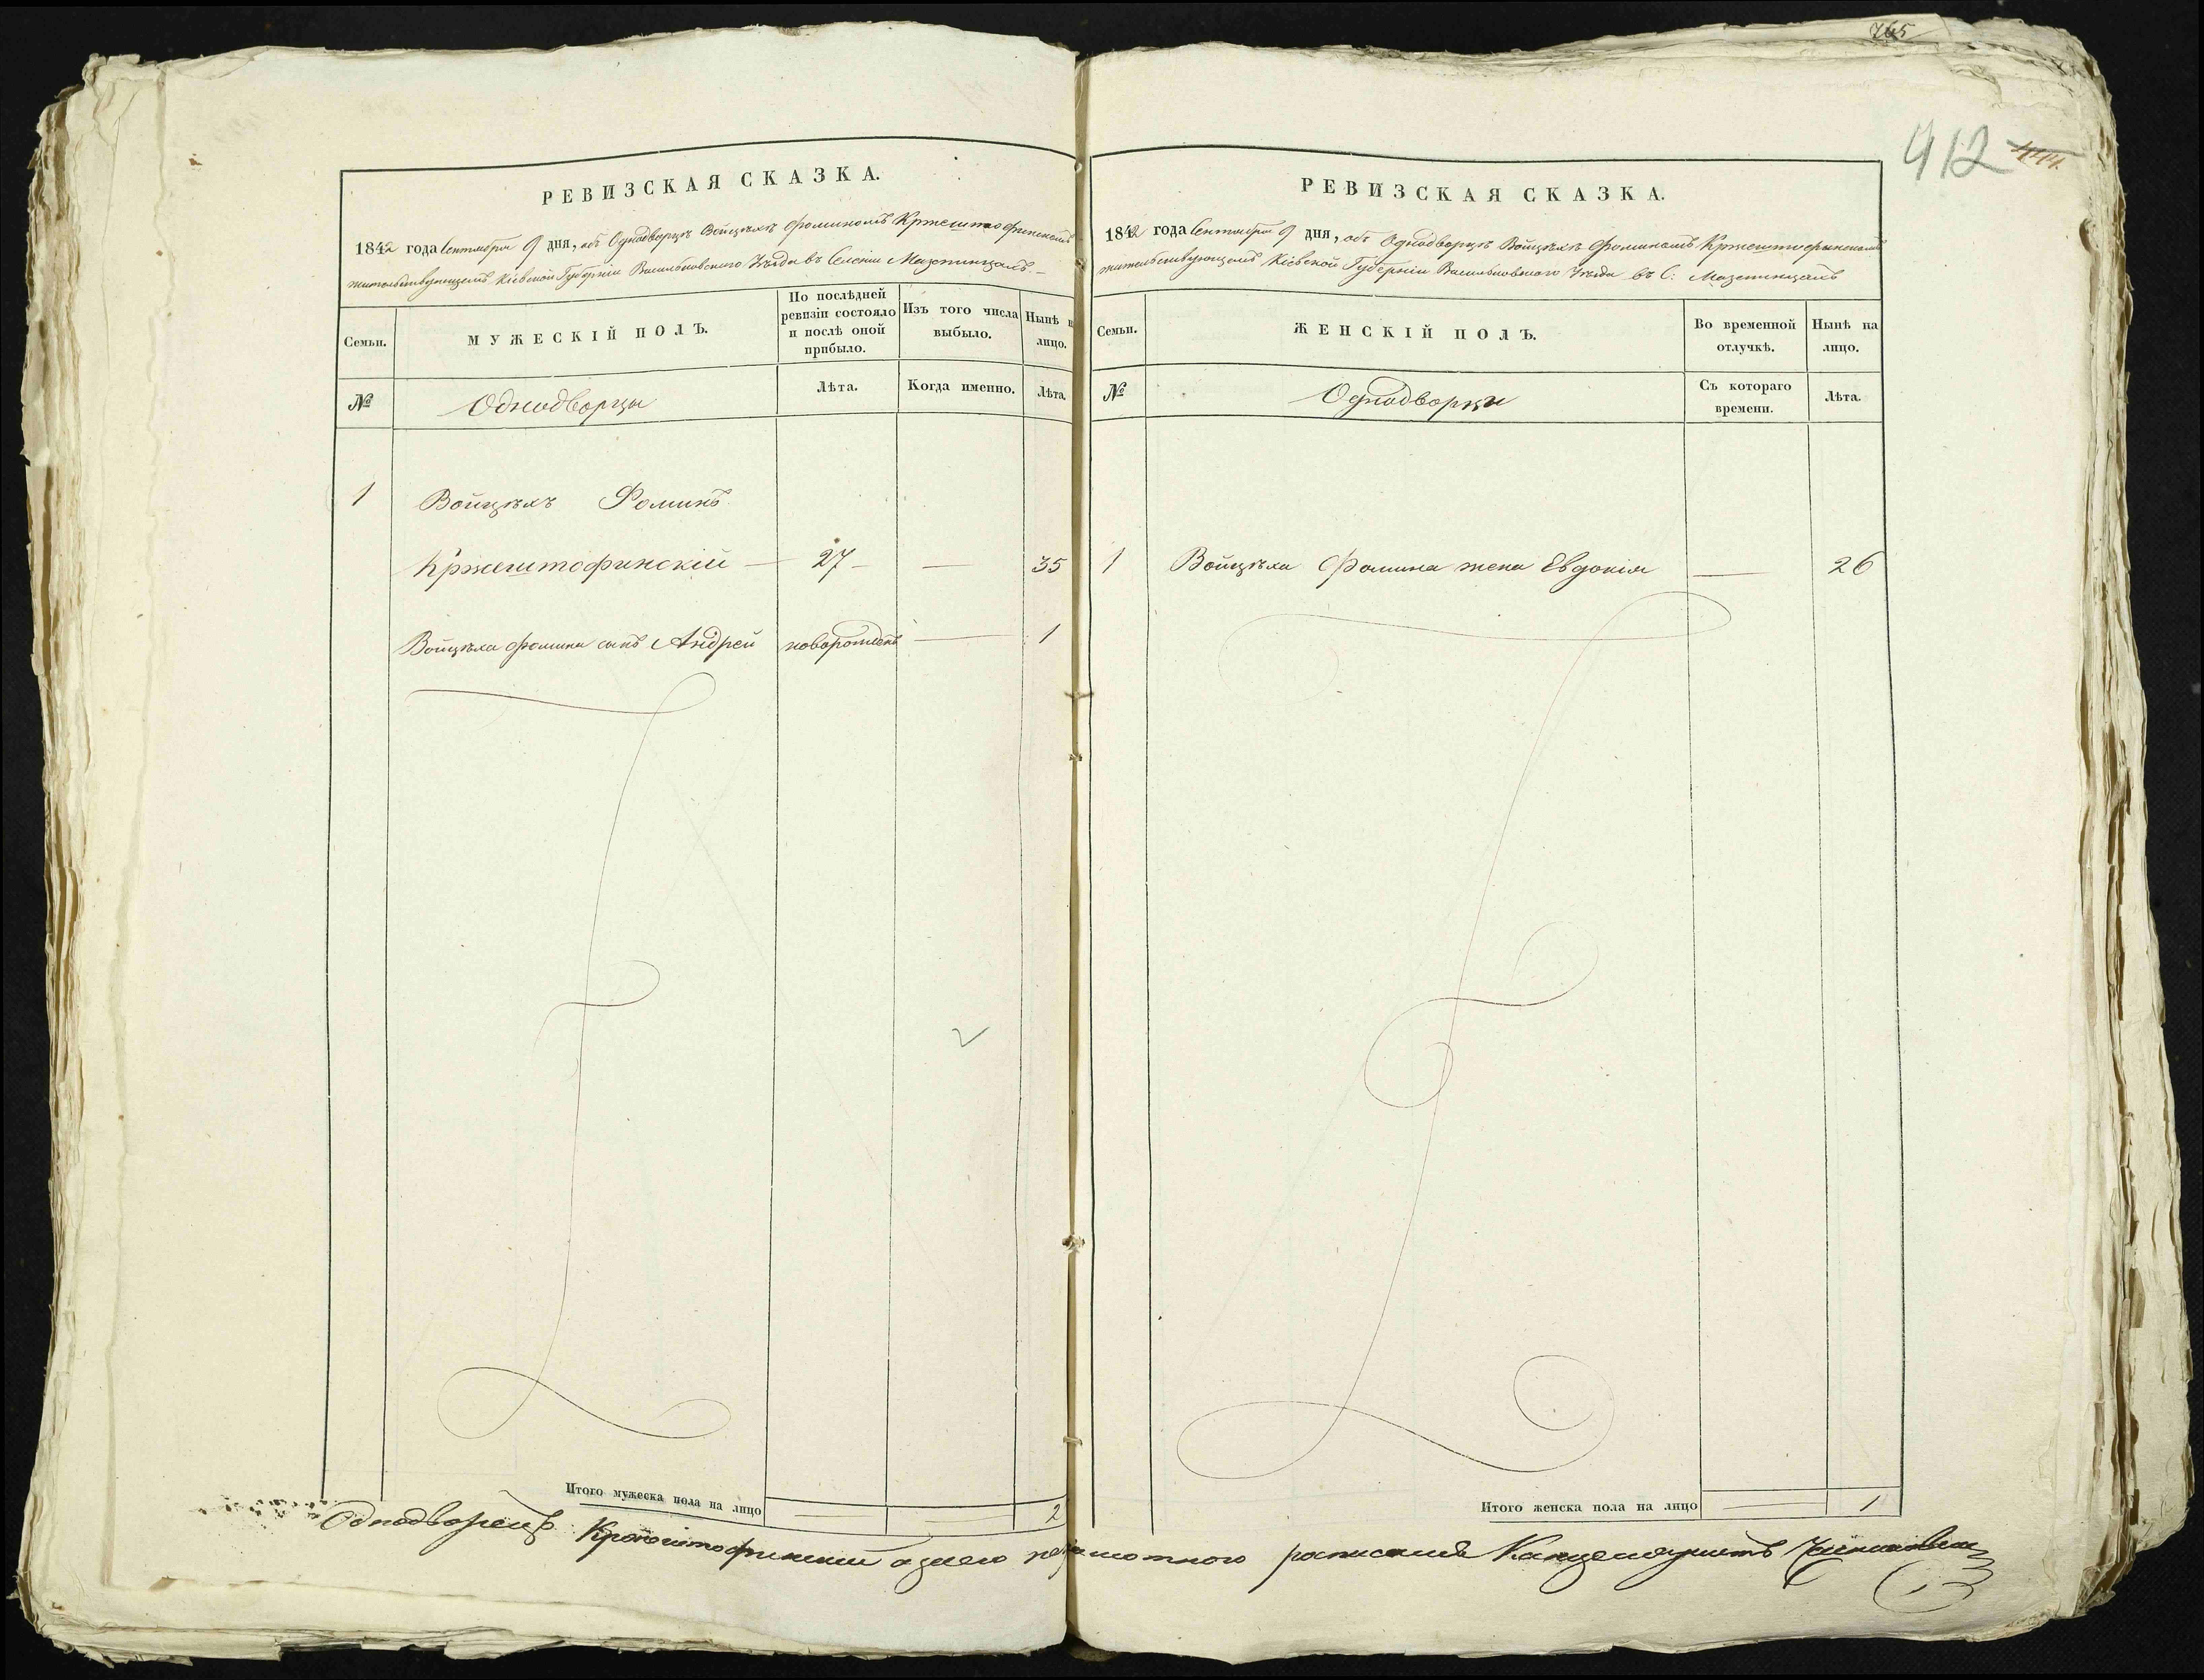 765
РЕВИЗСКАЯ СКАЗКА.
1842 года Сентября 9 дня, объ Однодворцѣ Войцѣхѣ Фоминомъ Кржештофинскомъ
жительствующемъ Кіевской Губерніи Васильковскаго Уѣзда въ Селеніи Мазепинцахъ
Семьи.
МУЖЕСКІЙ ПОЛЪ.
По послѣдней ревизіи состояло и послѣ оной прибыло.
Изъ того числа выбыло.
Нынѣ на лицо.
№
Однодворцы
Лѣта.
Когда именно.
Лѣта.
1 Войцѣхъ Фоминъ
Кржештофинскій — 27 — — 35
Войцѣха Фомина сынъ Андрей новорожденъ — 1
Итого мужеска пола на лицо — — 2
412 444.
РЕВИЗСКАЯ СКАЗКА.
1842 года Сентября 9 дня, объ Однодворцѣ Войцѣхѣ Фоминомъ Кржештофинскомъ
жительствующемъ Кіевской Губерніи Васильковскаго Уѣзда въ С: Мазепинцахъ
Семьи.
ЖЕНСКІЙ ПОЛЪ.
Во временной отлучкѣ.
Нынѣ на лицо.
№
Однодворцы
Съ котораго времени.
Лѣта.
1 Войцѣха Фомина жена Евдокія — 26
Итого женска пола на лицо — 1
Однодворецъ Кржештофинскій а за него неграмотнаго росписался Канцеляристъ